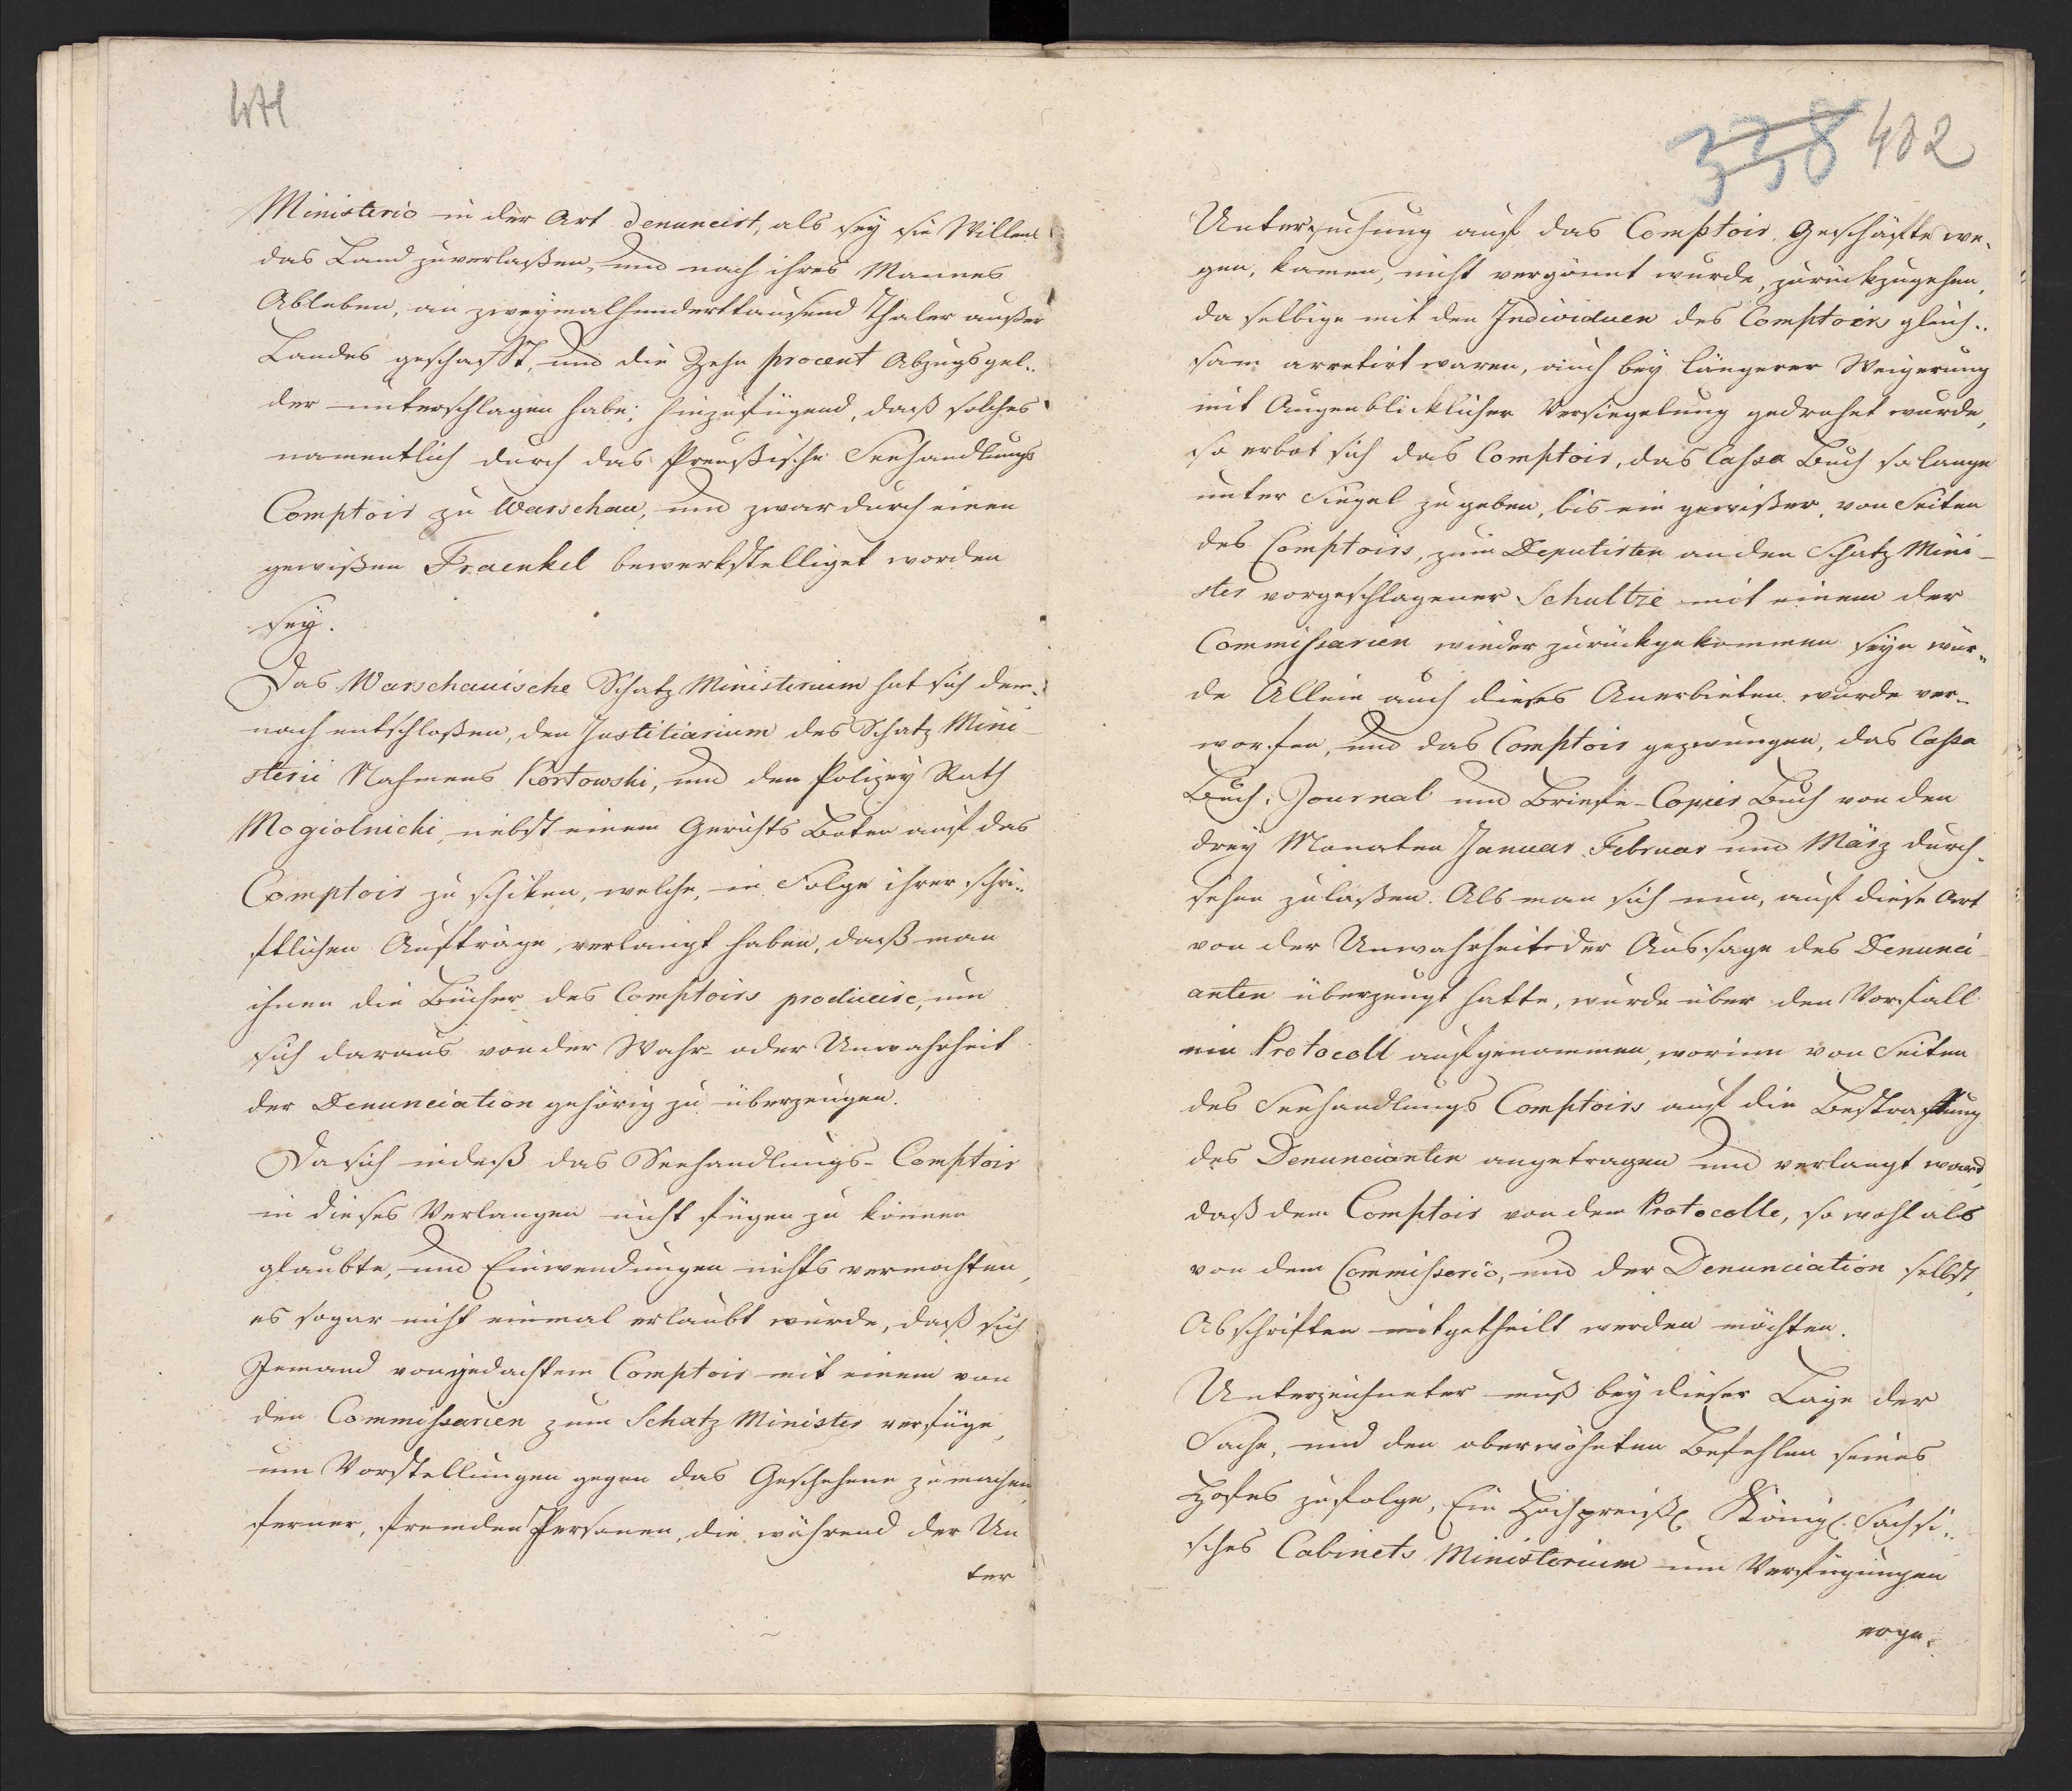 Ministerio in der Art denuncirt, als sey sie Willens
das Land zuverlaßen, und nach ihres Mannes
Ableben, an zweymalhunderttausend Thaler außer
Landes geschafft, und die Zehn procent Abzugsgel-
der unterschlagen habe; hinzufügend, daß solches
namentlich durch das Preußische Seehandlungs
Comptoir zu Warschau, und zwar durch einen
gewißen Fraenkel bewerkstelliget worden
sey.
Das Warschauische Schatz Ministerium hat sich dem-
nach entschloßen, den Justitiarium des Schatz Mini-
sterii Nahmens Kortowski, und den Polizey Rath
Mogiolnicki, nebst einem Gerichts Boten auf das
Comptoir zu schiken, welche, in Folge ihrer schri-
ftlichen Aufträge, verlangt haben, daß man
ihnen die Bücher des Comptoirs producire, um
sich daraus von der Wahr- oder Unwahrheit
der Denunciation gehörig zu überzeugen.
Da sich indeß das Seehandlungs-Comptoir
in dieses Verlangen nicht fügen zu können
glaubte, und Einwendungen nichts vermochten,
es sogar nicht einmal erlaubt wurde, daß sich
Jemand von gedachtem Comptoir mit einem von
den Commissarien zum Schatz Minister verfüge,
um Vorstellungen gegen das Geschehene zu machen,
ferner, fremden Personen, die während der Un
ter
338 402
Untersuchung auf das Comptoir, Geschäfte we-
gen, kamen, nicht vergönnt wurde, zurückzugehen,
da selbige mit den Individuen des Comptoirs gleich-
sam arretirt waren, auch bey längerer Weigerung
mit Augenblicklicher Versiegelung gedrohet wurde,
so erbot sich das Comptoir, das Cassa Buch so lange
unter Siegel zu geben, bis ein gewißer, von Seiten
des Comptoirs, zum Deputirten an den Schatz Mini-
ster vorgeschlagener Schultze mit einem der
Commissarien wieder zurückgekommen seyn wür-
de Allein auch dieses Anerbieten wurde ver-
worfen, und das Comptoir gezwungen, das Cassa
Buch, Journal und Briefe-Copier Buch von den
drey Monaten Januar Februar und März durch-
sehen zulaßen. Als man sich nun, auf diese Art
von der Unwahrheit der Aussage des Denunci-
anten überzeugt hatte, wurde über den Vorfall
ein Protocoll aufgenommen, worinn von Seiten
des Seehandlungs Comptoirs auf die Bestrafung
des Denuncianten angetragen und verlangt ward,
daß dem Comptoir von dem Protocolle, so wohl als
von dem Commissorio, und der Denunciation selbst,
Abschriften mitgetheilt werden möchten.
Unterzeichneter muß bey dieser Lage der
Sache, und den oberwähnten Befehlen seines
Hofes zufolge, Ein Hochpreißl Königl. Sächsi-
sches Cabinets Ministerium um Verfügungen
erge-